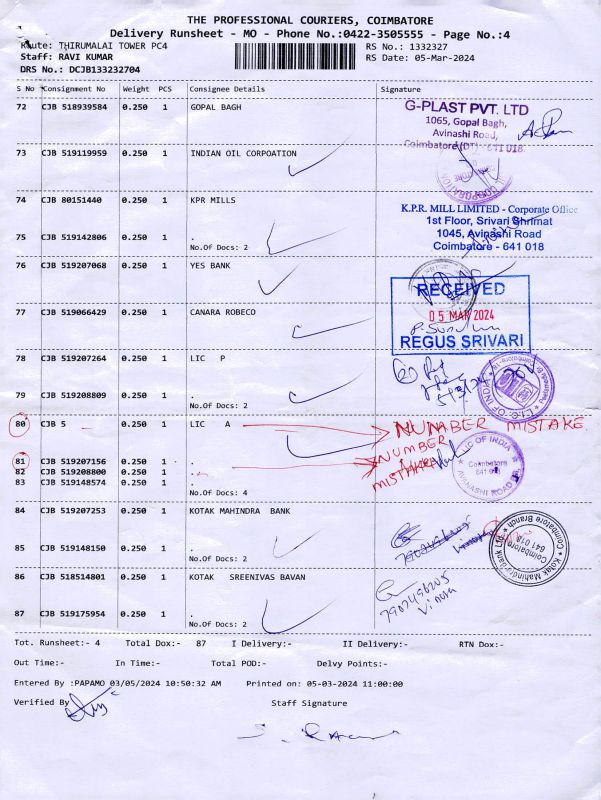 THE PROFESSIONAL COURIERS, COIMBATORE
Delivery Runsheet - MO - Phone No.:0422-3505555 - Page No.:4
Route: THIRUMALAI TOWER PC4
RS No.: 1332327
Staff: RAVI KUMAR
RS Date: 05-Mar-2024
DRS No.: DCJB133232704
S No Consignment No Weight PCS Consignee Details Signature
72 CJB 518939584 0.250 1 GOPAL BAGH
G-PLAST PVT. LTD
1065, Gopal Bagh,
Avinashi Road,
Coimbatore (DT) - 641 018.
73 CJB 519119959 0.250 1 INDIAN OIL CORPOATION
74 CJB 80151440 0.250 1 KPR MILLS
K.P.R. MILL LIMITED - Corporate Office
1st Floor, Srivari Shrimat
1045, Avinashi Road
Coimbatore - 641 018
75 CJB 519142806 0.250 1 .
No.Of Docs: 2
76 CJB 519207068 0.250 1 YES BANK
RECEIVED
05 MAR 2024
REGUS SRIVARI
77 CJB 519066429 0.250 1 CANARA ROBECO
78 CJB 519207264 0.250 1 LIC P
79 CJB 519208809 0.250 1 .
No.Of Docs: 2
5/3/24
L.I.C. OF INDIA
80 CJB 5 0.250 1 LIC A
NUNABER MISTAKE
81 CJB 519207156 0.250 1 .
NUMBER
82 CJB 519208800 0.250 1 .
83 CJB 519148574 0.250 1 .
No.Of Docs: 4
LIC OF INDIA
Coimbatore
AVINASHI ROAD
84 CJB 519207253 0.250 1 KOTAK MAHINDRA BANK
85 CJB 519148150 0.250 1 .
No.Of Docs: 2
Kotak Mahindra Bank Ltd.
Coimbatore Branch
Coimbatore
641 018
86 CJB 518514801 0.250 1 KOTAK SREENIVAS BAVAN
87 CJB 519175954 0.250 1 .
No.Of Docs: 2
Tot. Runsheet:- 4 Total Dox:- 87 I Delivery:- II Delivery:- RTN Dox:-
Out Time:- In Time:- Total POD:- Delvy Points:-
Entered By :PAPAMO 03/05/2024 10:50:32 AM Printed on: 05-03-2024 11:00:00
Verified By
Staff Signature